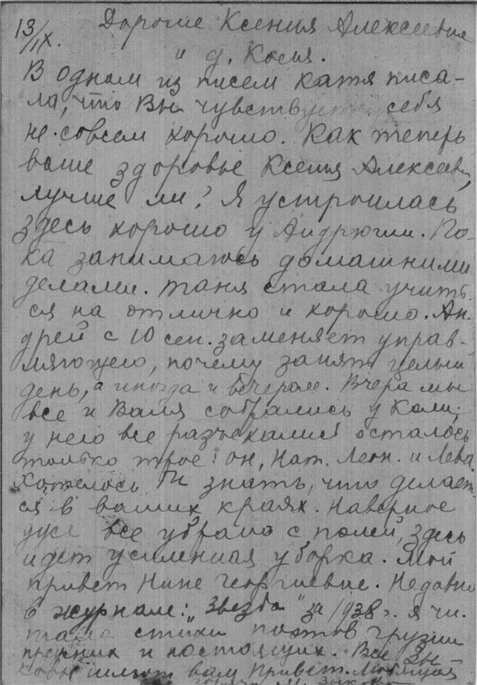 13/IX. Дорогие Ксения Алексеевна
и д. Костя.
В одном из писем Катя писа-
ла, что Вы чувствуете себя
не совсем хорошо. Как теперь
ваше здоровье Ксения Алексеев,
лучше ли? Я устроилась
здесь хорошо у Андрюши. По-
ка занимаюсь домашними
делами. Таня стала учить-
ся на отлично и хорошо. Ан-
дрей с 10 сен. заменяет управ-
ляющего, почему занят целый
день, а иногда и вечером. Вчера мы
все и Валя собрались у Коли;
у него все разъехались осталось
только трое: он, Нат. Леон. и Лева.
Хотелось бы знать, что делает-
ся в ваших краях. Наверное
уже все убрано с полей, здесь
идет усиленная уборка. Мой
привет Нине Георгиевне. Недавно
в журнале: "Звезда" за 1938 г. я чи-
тала стихи поэтов Грузии
прежних и настоящих. Все Зы-
ковы шлют вам привет. Любящая